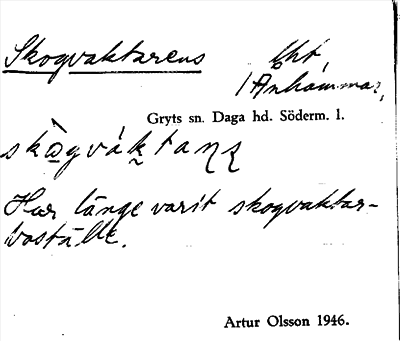 Skogvaktarens
t.
/ Änhammar,
Gryts sn. Daga hd. Söderm. l.
Har länge varit skogvaktar-
boställe.
Artur Olsson 1946.